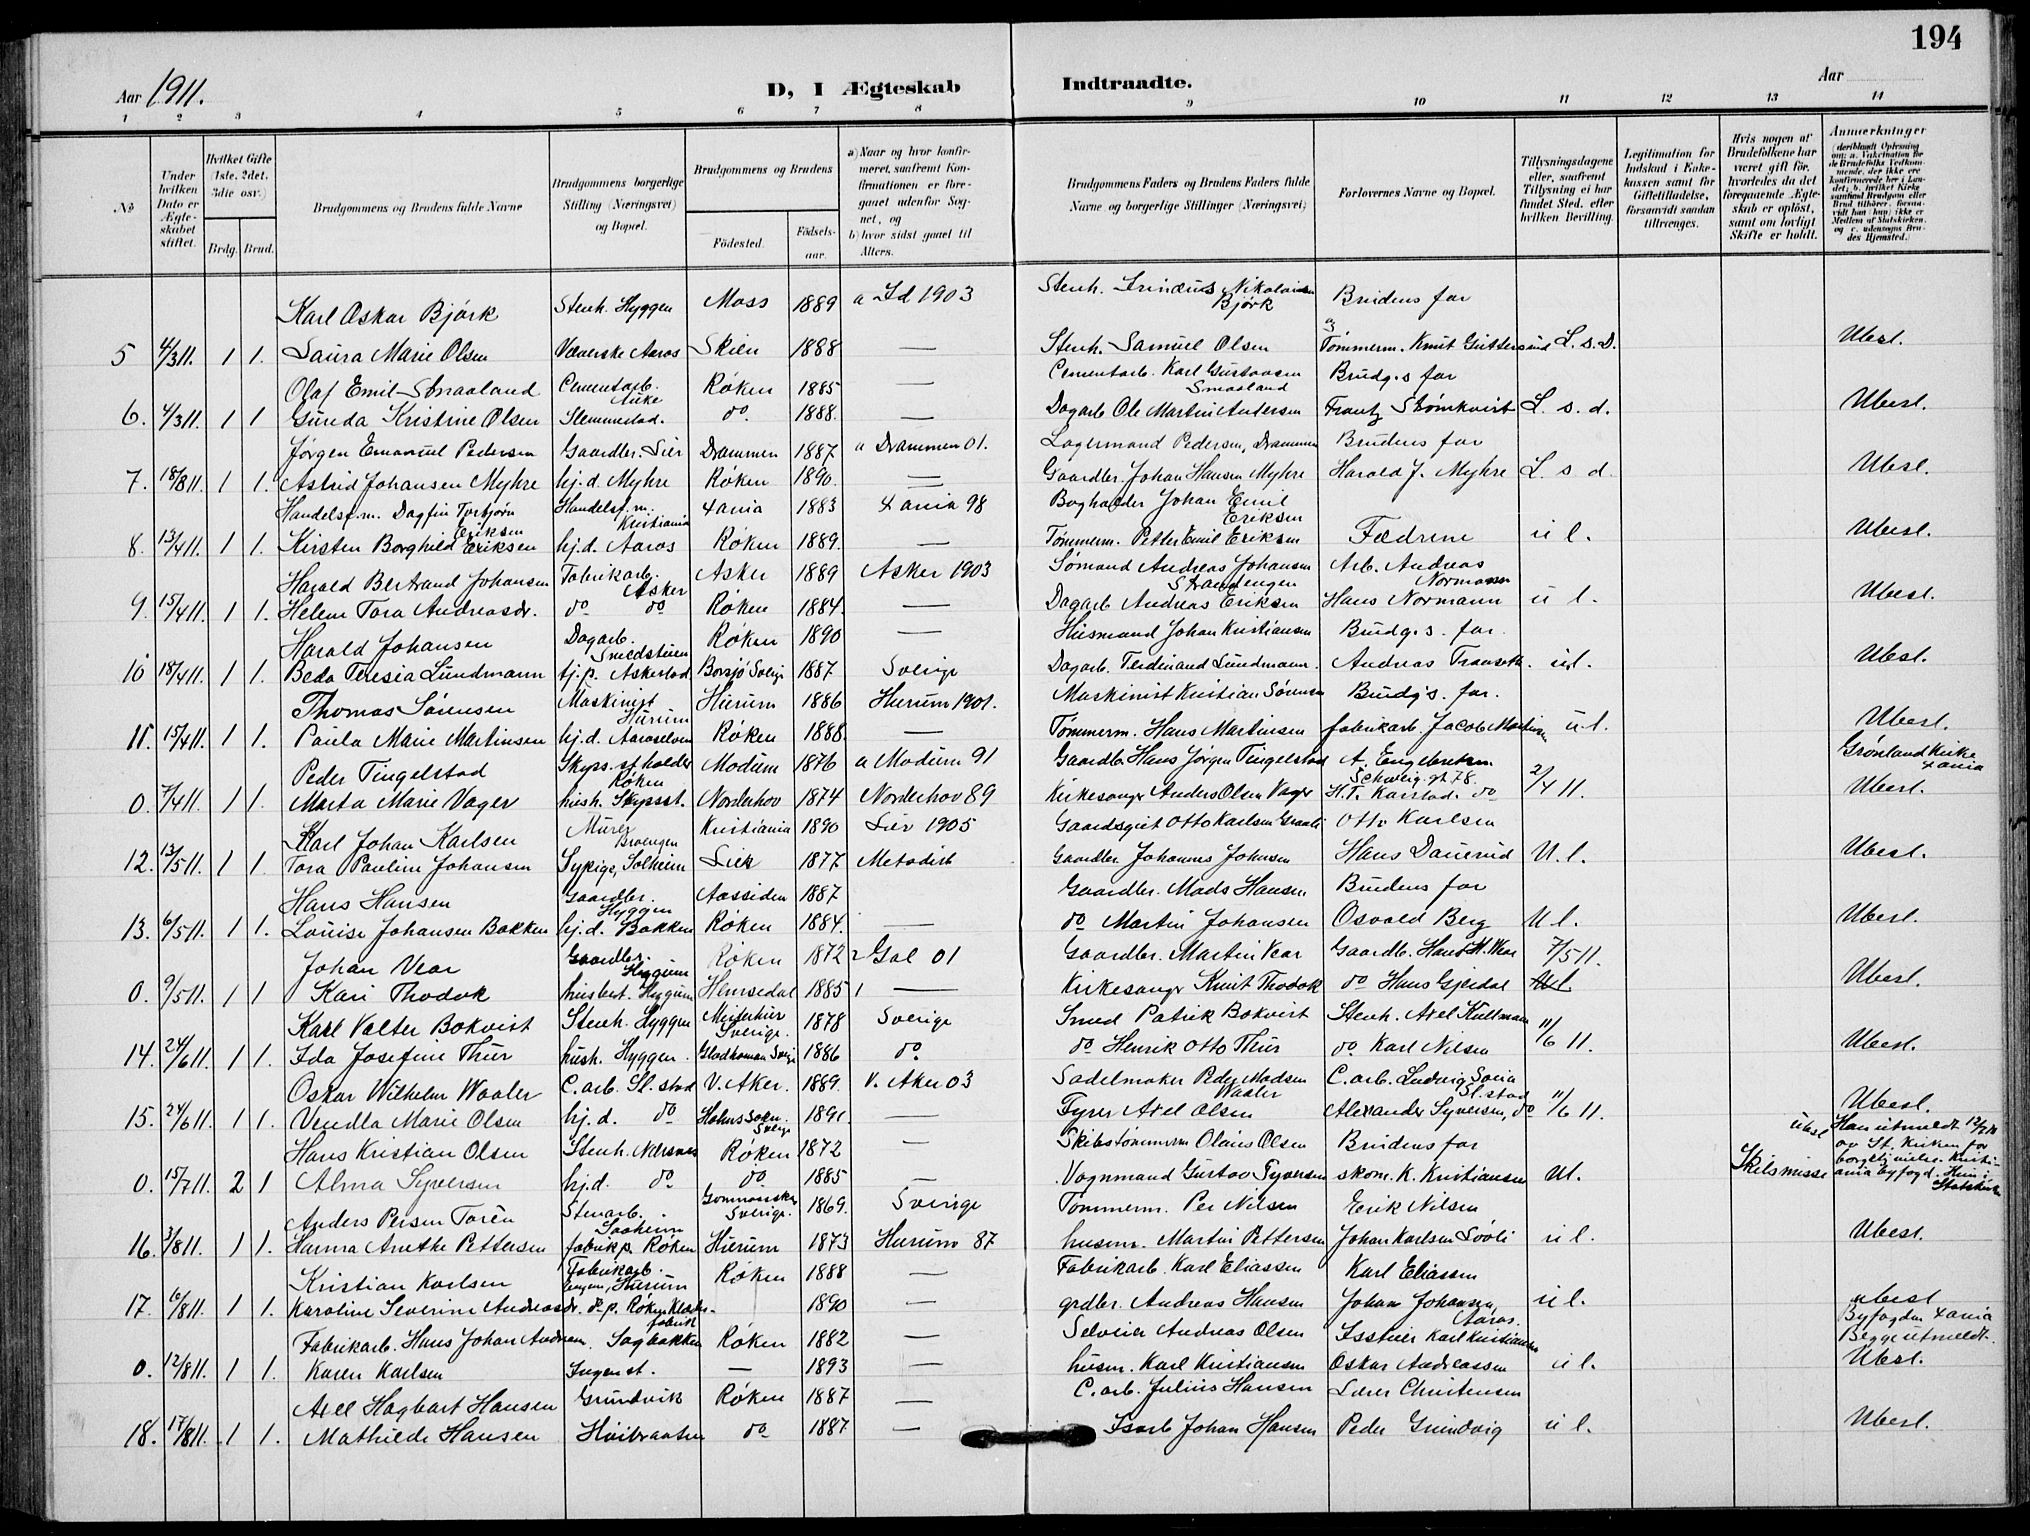 194
Aar 1911.
D, I Ægteskab Indtraadte.
Aar
1 2 3 4 5 6 7 8 9 10 11 12 13 14
No
Under hvilken Dato er Ægteskabet stiftet.
Hvilket Gifte (1ste, 2det, 3die osv.)
Brdg. Brud.
Brudgommens og Brudens fulde Navne
Brudgommens borgerlige Stilling (Næringsvei) og Bopæl.
Brudgommens og Brudens
Fødested. Fødselsaar.
a) Naar og hvor konfirmeret, saafremt Konfirmationen er foregaaet udenfor Sognet, og
b) hvor sidst gaaet til Alters.
Brudgommens Faders og Brudens Faders fulde Navne og borgerlige Stillinger (Næringsvei)
Forlovernes Navne og Bopæl.
Tillysningsdagene eller, saafremt Tillysning ei har fundet Sted, efter hvilken Bevilling.
Legitimation for Indskud i Enkekassen samt for Giftetilladelse, forsaavidt saadan tiltrænges.
Hvis nogen af Brudefolkene har været gift før, hvorledes da det foregaaende Ægteskab er opløst, samt om lovligt Skifte er holdt.
Anmærkninger (deriblandt Oplysning om: a. Vakcination for de Brudefolks Vedkommende, der ikke ere konfirmerede her i Landet; b. hvilket Kirkesamfund Brudgom eller Brud tilhører, forsaavidt han (hun) ikke er Medlem af Statskirken, og c. udensogns Brudes Hjemsted.)
Karl Oskar Bjørk Stenh. Hyggen Moss 1889 a Id 1903 Stenh. Nikolaisen Bjørk Brudens far
5 4/3 11. 1 1. Laura Marie Olsen Væverske Aaros Skien 1888 — Stenh. Samuel Olsen og Tømmerm. Knut Guttersrud L. s. D. Ubesl.
Olaf Emil Smaaland Cementarb. Røken 1885 — Cementarb. Karl Gustavsen Smaaland Brudg.s far
6. 4/3 11. 1 1 Gunda Kristine Olsen Slemmestad. do 1888. — Dagarb Ole Martin Andersen Frantz Strømkvist L. s. d. Ubesl.
Jørgen Emanuel Pedersen Gaardbr. Lier Drammen 1887 a Drammen 01. Lagermand Pedersen, Drammen Brudens far
7. 18/3 11. 1 1. Astrid Johansen Myhre hj. d. Myhre Røken 1890. — Gaardbr. Johan Hansen Myhre Harald J. Myhre L s d. Ubesl.
Handelsf.m. Dagfin Torbjørn Eriksen Handelsf. m. Kristiania Xania 1883 Xania 98 Bogholder Johan Emil Eriksen
8. 13/4 11. 1 1. Kirsten Borghild Eriksen hj. d. Aaros Røken 1889. — Tømmerm. Petter Emil Eriksen Fædrene u l. Ubesl.
Harald Bertrand Johansen Fabrikarb. Asker Asker 1889 Asker 1903 Sømand Andreas Johansen Strandengen Arb. Andreas Normann
9. 15/4 11. 1 1. Helene Tora Andreasdr. do do Røken 1884. — Dagarb Andreas Eriksen Hans Normann u l. Ubesl.
Harald Johansen Dagarb. Smedstuen Røken 1890 — Husmand Johan Kristiansen Brudg.s. far.
10 18/4 11. 1 1. Beda Teresia Lundmann tj. p. Askestad Borsjø Sverige 1887 Sverige Dagarb. Ferdinand Lundmann. Andreas ul. Ubesl.
Thomas Sørensen Maskinist Hurum Hurum 1886 Hurum 1901. Maskinist Kristian Sørensen Brudg's. far.
11. 15/4 11. 1 1. Paula Marie Martinsen hj. d. Aaroselven Røken 1888. — Tømmerm. Hans Martinsen fabrikarb. Jacob Martinsen u l. Ubesl.
Peder Tingelstad Skyss.st.holder Røken Modum 1876 a Modum 91 Gaardbr. Hans Jørgen Tingelstad A. Engebretsen Schweig. gt. 78. Grønland Kirke Xania
0. 7/4 11. 1 1. Marta Marie Vager hush. Skysst. Norderhov 1874 Norderhov 89 Kirkesanger Anders Olsen Vager H. T. Karstad. do 2/4 11. Ubesl.
Karl Johan Karlsen Murer Kristiania 1890 Lier 1905 Gaardsgut Otto Karlsen Otto Karlsen
12. 13/5 11. 1 1. Tora Pauline Johansen Sypige, Solheim Lier 1877 Metodist Gaardbr Johannes Johnsen Hans Dauerud U. l. Ubesl.
Hans Hansen Gaardbr. Hyggen Aassiden 1887 Gaardbr. Mads Hansen Brudens far
13. 6/5 11. 1 1. Louise Johansen Bakken hj. d. Bakken Røken 1884. — do Martin Johansen Osvald Berg U l. Ubesl.
Johan Vear Gaardbr. Røken 1872 Gol 01 Gaardbr. Martin Vear Gaardb. Hans M. Vear 7/5 11.
0. 9/5 11. 1 1 Kari Thodok Hemsedal 1885 — Kirkesanger Knut Thodok do Hans Gjerdal Ubesl.
Karl Valter Bokvist Stenh. Hyggen Sverige. 1878 Sverige Smed Patrik Bokvist Stenh. Axel Kullmann
14. 24/6 11. 1 1. Ida Josefine Thur hush. Hyggen. 1886 do do Henrik Otto Thur do Karl Nilsen 11/6 11. Ubesl.
Oskar Wilhelm Waaler C. arb. Sl.stad V. Aker. 1889. V. Aker 03 Sadelmaker Peder Madsen Waaler C. arb. Ludvig Sl.stad
15. 24/6 11. 1 1. Vendla Marie Olsen hj. d. do Sverige 1891. — Fyrer Axel Olsen Alexander Syversen, do 11/6 11. Ubesl.
Hans Kristian Olsen Stenh. Nærsnes Røken 1872 — Skibstømmerm Olaus Olsen Brudens far ubesl Han utmeldt
0. 15/7 11. 2 1 Alma Syversen hj. d. do do 1885 — Vognmand Gustav Syversen skom. K. Kristiansen ul. Skilsmisse av St. Kirken for Kristiania byfogd. Hun i Statskirken
Anders Persen Torén Stenarb. Sverige. 1869. Sverige Tømmerm. Per Nilsen Erik Nilsen
16. 3/8 11. 1 1. Hanna Anethe Pettersen fabrikp. Røken Hurum 1873 Hurum 87 husm. Martin Pettersen Johan Karlsen u l. Ubesl.
Kristian Karlsen Fabrikarb. Hurum Røken 1888 — Fabrikarb. Karl Eliassen Karl Eliassen
17. 6/8 11. 1 1. Karoline Severine Andreasdr. p. Røken fabrik 1890 — grdbr. Andreas Hansen Johan Johansen, Aaros. u l. ubesl
Fabrikarb. Hans Johan Andersen. Sagbakken Røken 1882 — Selveier Andreas Olsen Karl Kristiansen Byfogden Xania Begge utmeldt.
0. 12/8 11. 1 1. Karen Karlsen Ingen st. — 1893 — husm. Karl Kristiansen Oskar Andreassen u l. Ubesl.
Axel Hagbart Hansen Grundvik Røken 1887 — C. arb. Julius Hansen Lærer Christensen
18. 17/8 11. 1 1. Mathilde Hansen Høibraaten do 1887 — Johan Hansen Peder Grundvig u l. Ubesl.